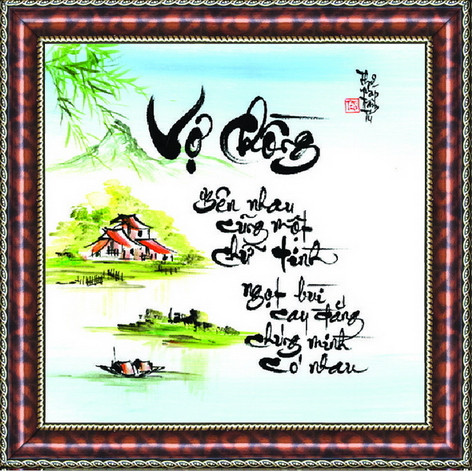 Vợ Chồng
Bên nhau
cũng một
chữ tình
ngọt bùi
cay đắng
chúng mình
có nhau